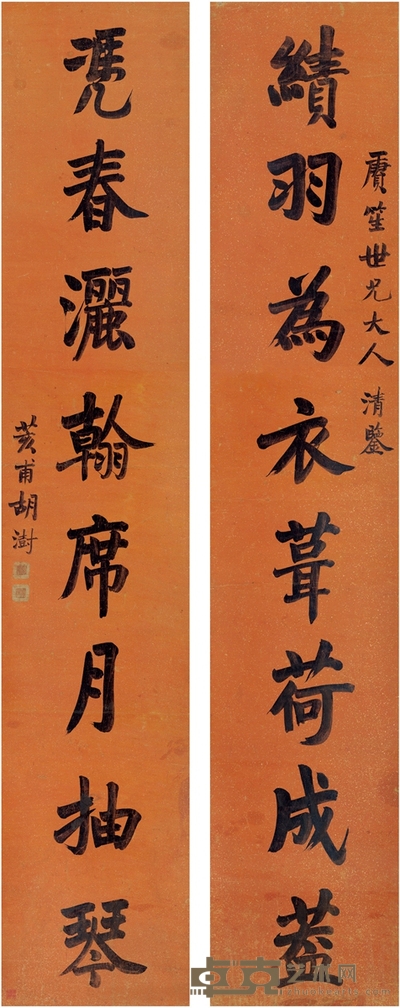 賡笙世兄大人清鑒
績羽為衣葺荷成蓋
凴春灑翰席月抽琴
荄甫胡澍